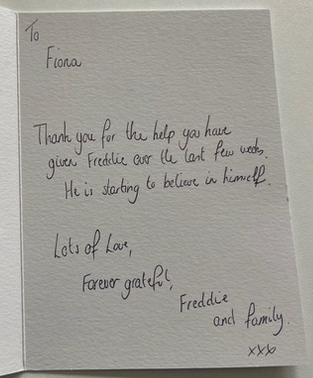 To
Fiona
Thank you for the help you have
given Freddie over the last few weeks.
He is starting to believe in himself.
Lots of Love,
Forever grateful,
Freddie
and family.
xxx